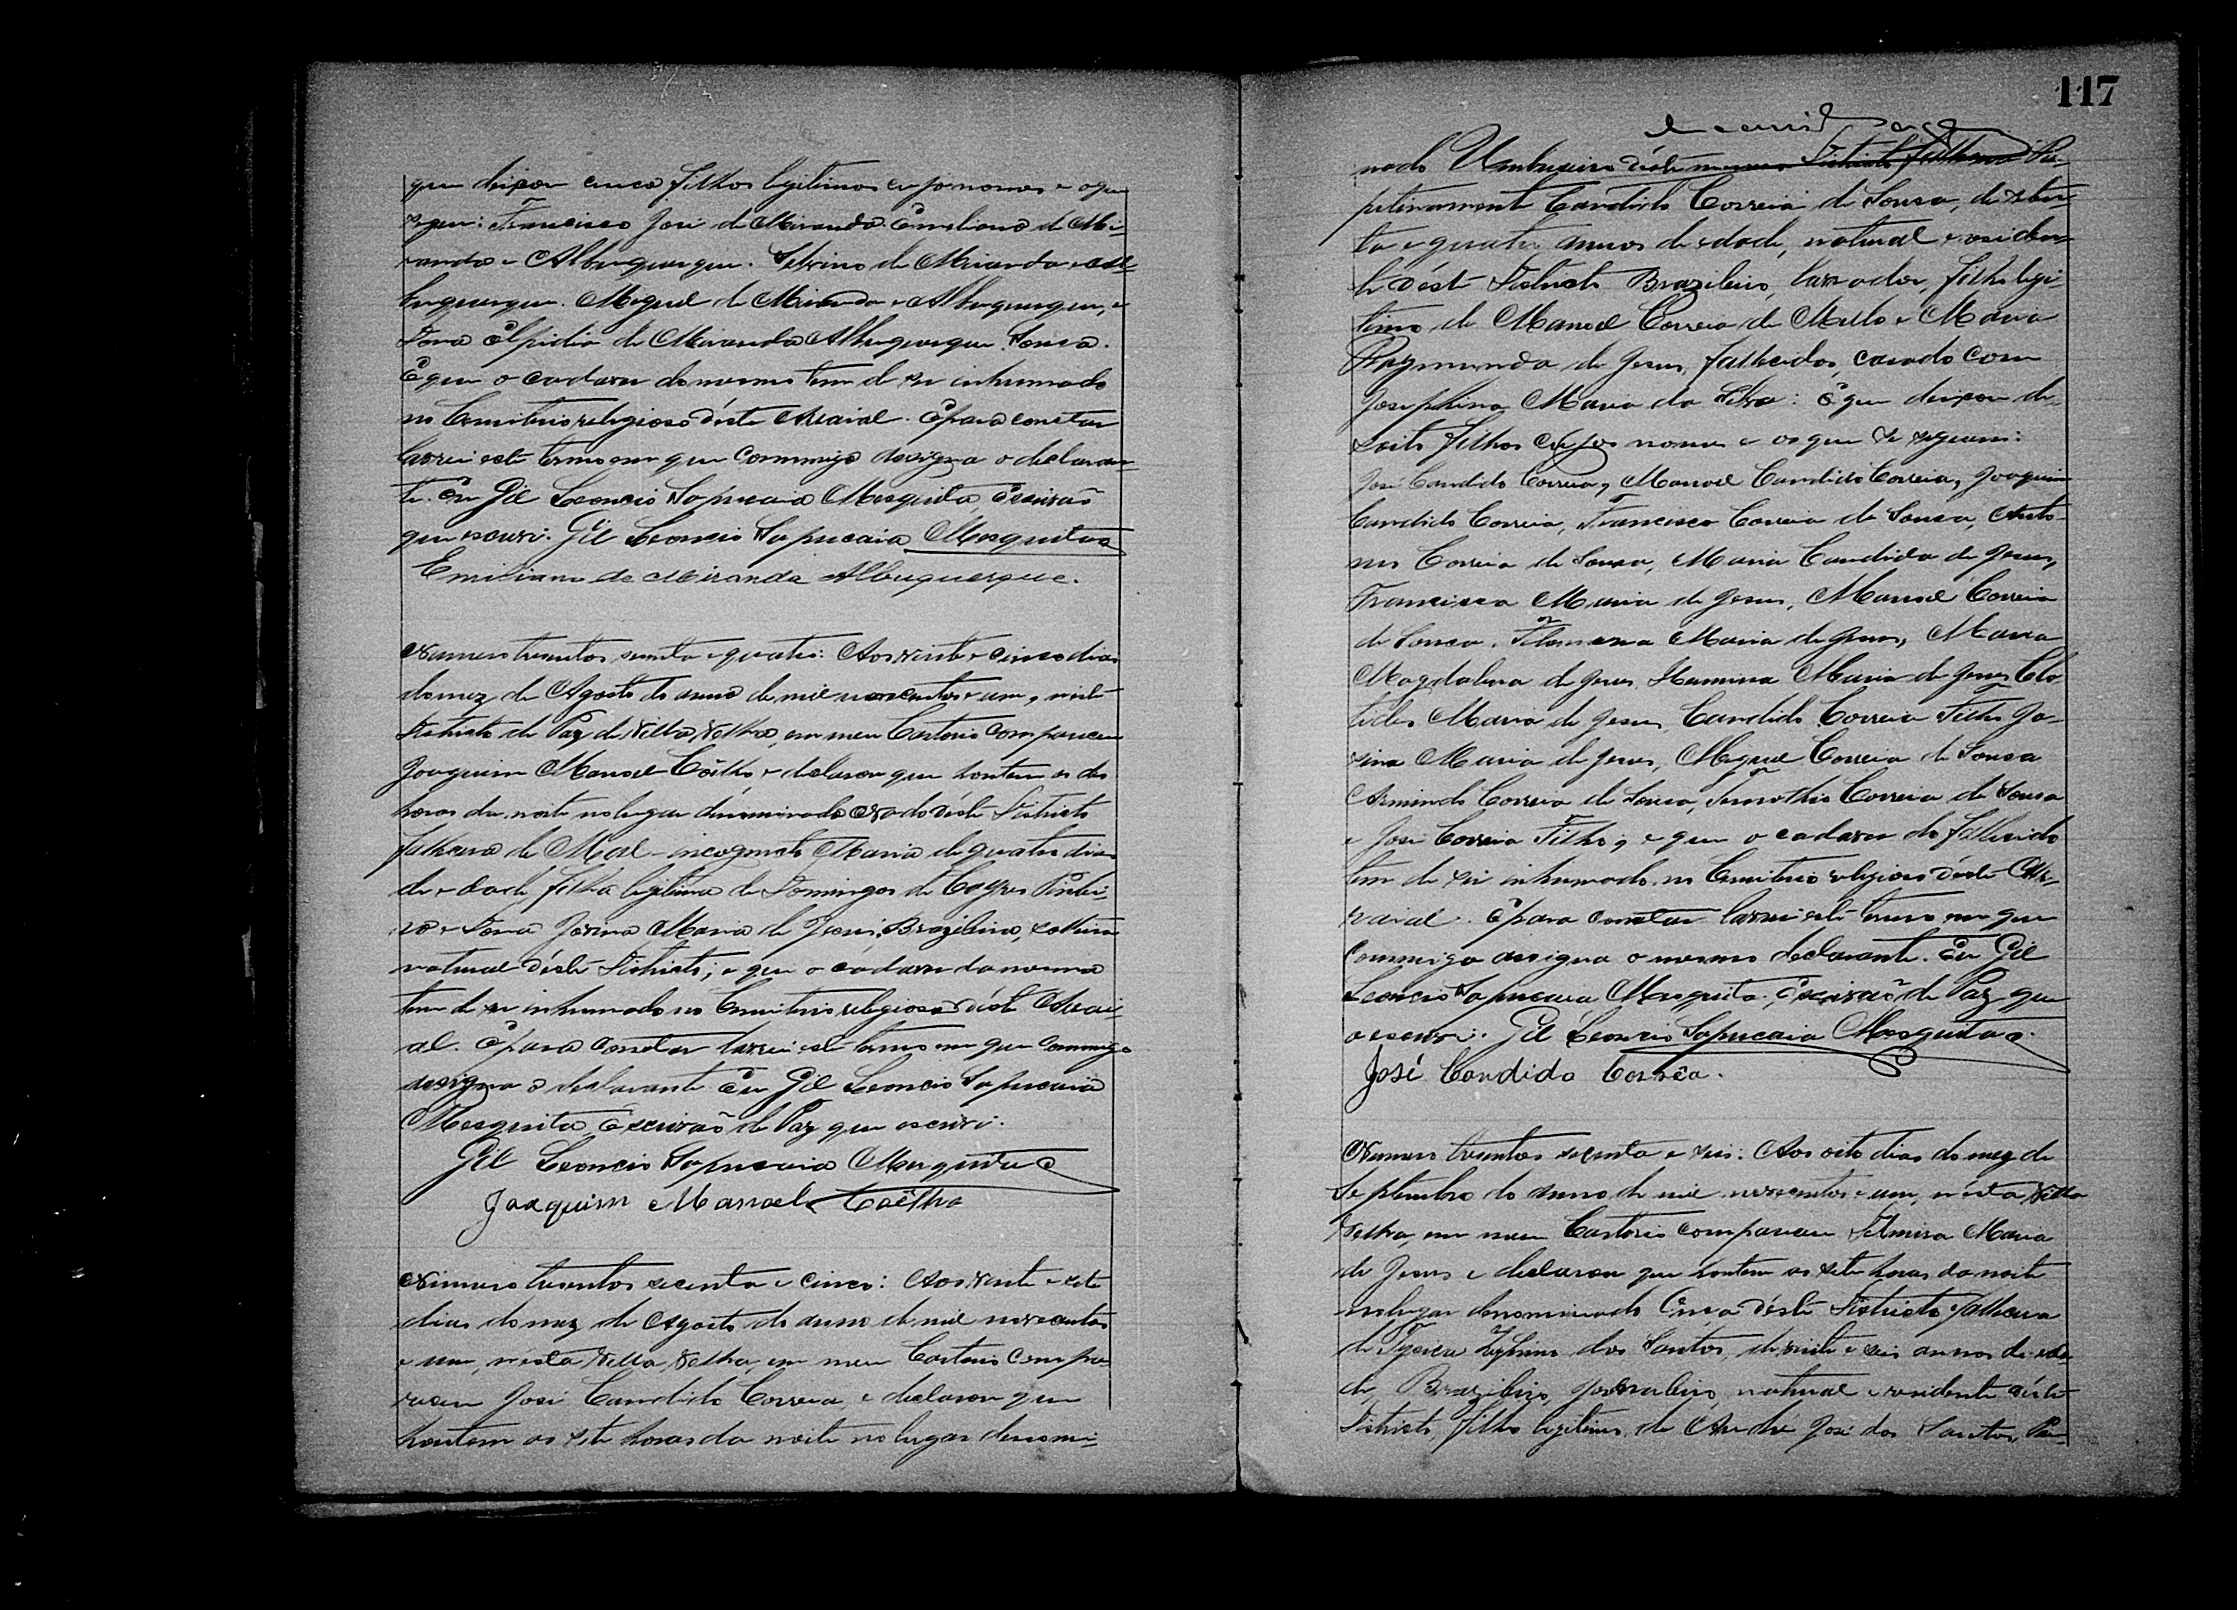 que deixou cinco filhos legitimos cujos nomes e o que
segue: Francisco José de Miranda. Emiliano de Mi-
randa e Albuquerque. Silvino de Miranda e Al-
buquerque. Miguel de Miranda e Albuquerque, e
Dona Elpidia de Miranda Albuquerque Sousa.
E que o cadaver do mesmo tem de ser inhumado
no Cemiterio religioso déste Arraial. E para constar
lavrei este termo em que commigo assigna o declaran-
te. Eu Gil Leoncio Sapucaia Mesquita, Escrivaõ
que escrevi. Gil Leoncio Sapucaia Mesquita
Emiliano de Miranda Albuquerque.
Numero tresentos secenta e quatro: Aos vinte e cinco dias
do mez de Agosto do anno de mil novecentos e um, neste
Districto de Paz de Villa Velha, em meu Cartorio compareceu
Joaquim Manoel Coêlho, e declarou que hontem as dez
horas da noite no lugar denominado déste Districto
falleceu de Mal-incognito Maria de quatro dias
de edade filha legitima de Domingos de
e Dona Jovina Maria de Jesus, Brazileira, solteira
natural déste Districto; e que o cadaver da mesma
tem de ser inhumado no Cemiterio religioso déste Arrai-
al. E para constar lavrei este termo em que commigo
assigna o declarante Eu Gil Leoncio Sapucaia
Mesquita, Escrivaõ de Paz que escrevi.
Gil Leoncio Sapucaia Mesquita
Joaquim Manoel Coêlho
Numero tresentos secenta e cinco: Aos vinte e sete
dias do mez de Agosto do anno de mil novecentos
e um, nesta Villa Velha, em meu Cartorio compa-
receu José Candido Correia, e declarou que
hontem as sete horas da noite no lugar denomi-
117
nado Umbuseiro déste mesmo Districto falleceu Re-
pitinamente Candido Correia de Sousa, de seten-
ta e quatro annos de edade, natural e residen-
te dést Districto Brazileiro, lavrador, filho legi-
timo de Manoel Correia de Mello e Maria
Raymunda de Jesus, fallecidos, casado com
Josephina Maria da Silva: E que deixou de-
soito filhos cujos nomes e os que se seguem:
José Candido Correia, Manoel Candido Correia, Joaquim
Candido Correia, Francisco Correia de Sousa, Anto-
nio Correia de Sousa, Maria Candida de Jesus,
Francisca Maria de Jesus, Manoel Correia
de Sousa. Filomena Maria de Jesus, Maria
Magdalena de Jesus, Maria de Jesus Clo-
tides Maria de Jesus, Candido Correia Filho Jo-
vina Maria de Jesus, Miguel Correia de Sousa
Armindo Correia de Sousa, Timothio Correia de Sousa
e José Correia Filho, e que o cadaver do fallecido
tem de ser inhumado no Cemiterio religioso déste Ar-
raial. E para constar lavrei este termo em que
commigo assigna o mesmo declarante. Eu Gil
Leoncio Sapucaia Mesquita, Escrivaõ de Paz que
o escrevi. Gil Leoncio Sapucaia Mesquita
José Candido Corrêa.
Numero tresentos secenta e seis: Aos oito dias do mez de
Septembro do anno de mil novecentos e um, nésta Villa
Velha, em meu Cartorio compareceu Maria
de Jesus e declarou que hontem as sete horas da noite
no lugar denominado déste Districto falleceu
de dos Santos, de vinte e seis annos de eda-
de, Brazileiro, natural e residente déste
Districto, filho legitimo de André José dos Santos,